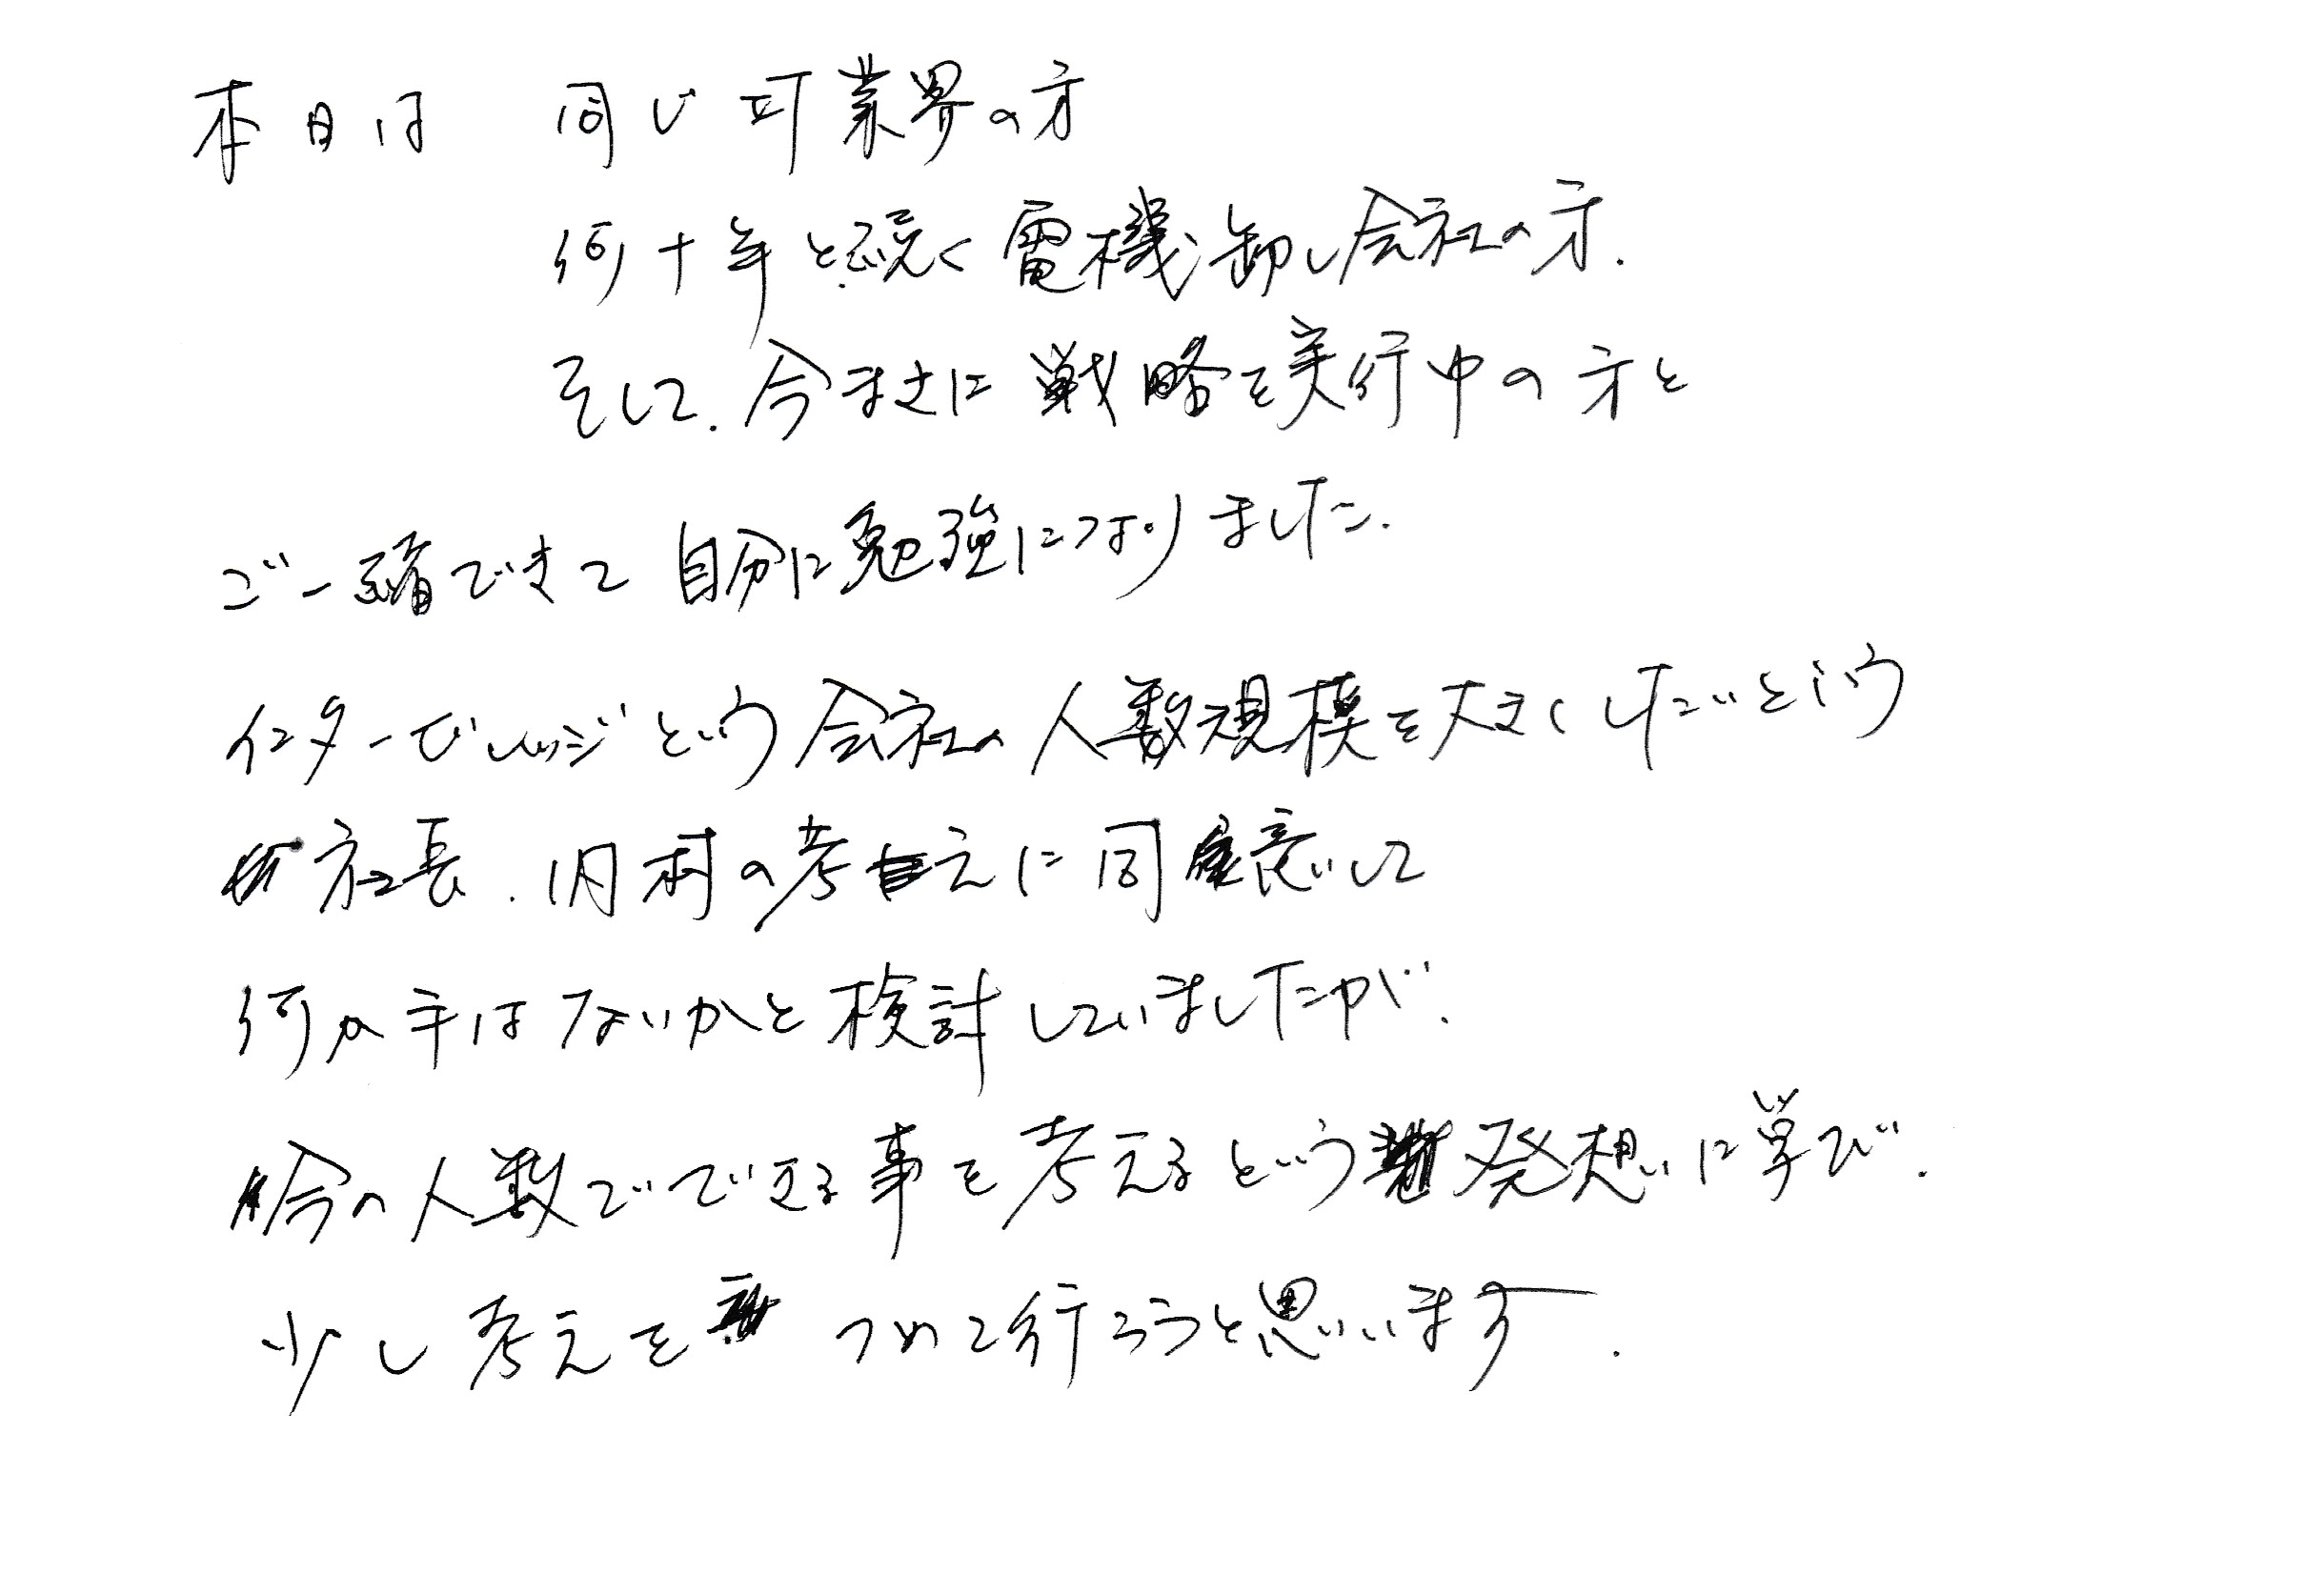 本日は 同じIT業界の方
何十年と続く電機卸し会社の方.
そして.今まさに戦略を実行中の方と
ご一緒できて自分に勉強になりました.
インタービレッジという会社の人数規模を大きくしたいという
社長.村の考えに同意して
何か手はないかと検討していましたが.
今の人数でできる事を考えるという発想に学び.
少し考えをつめて行ろうと思います.